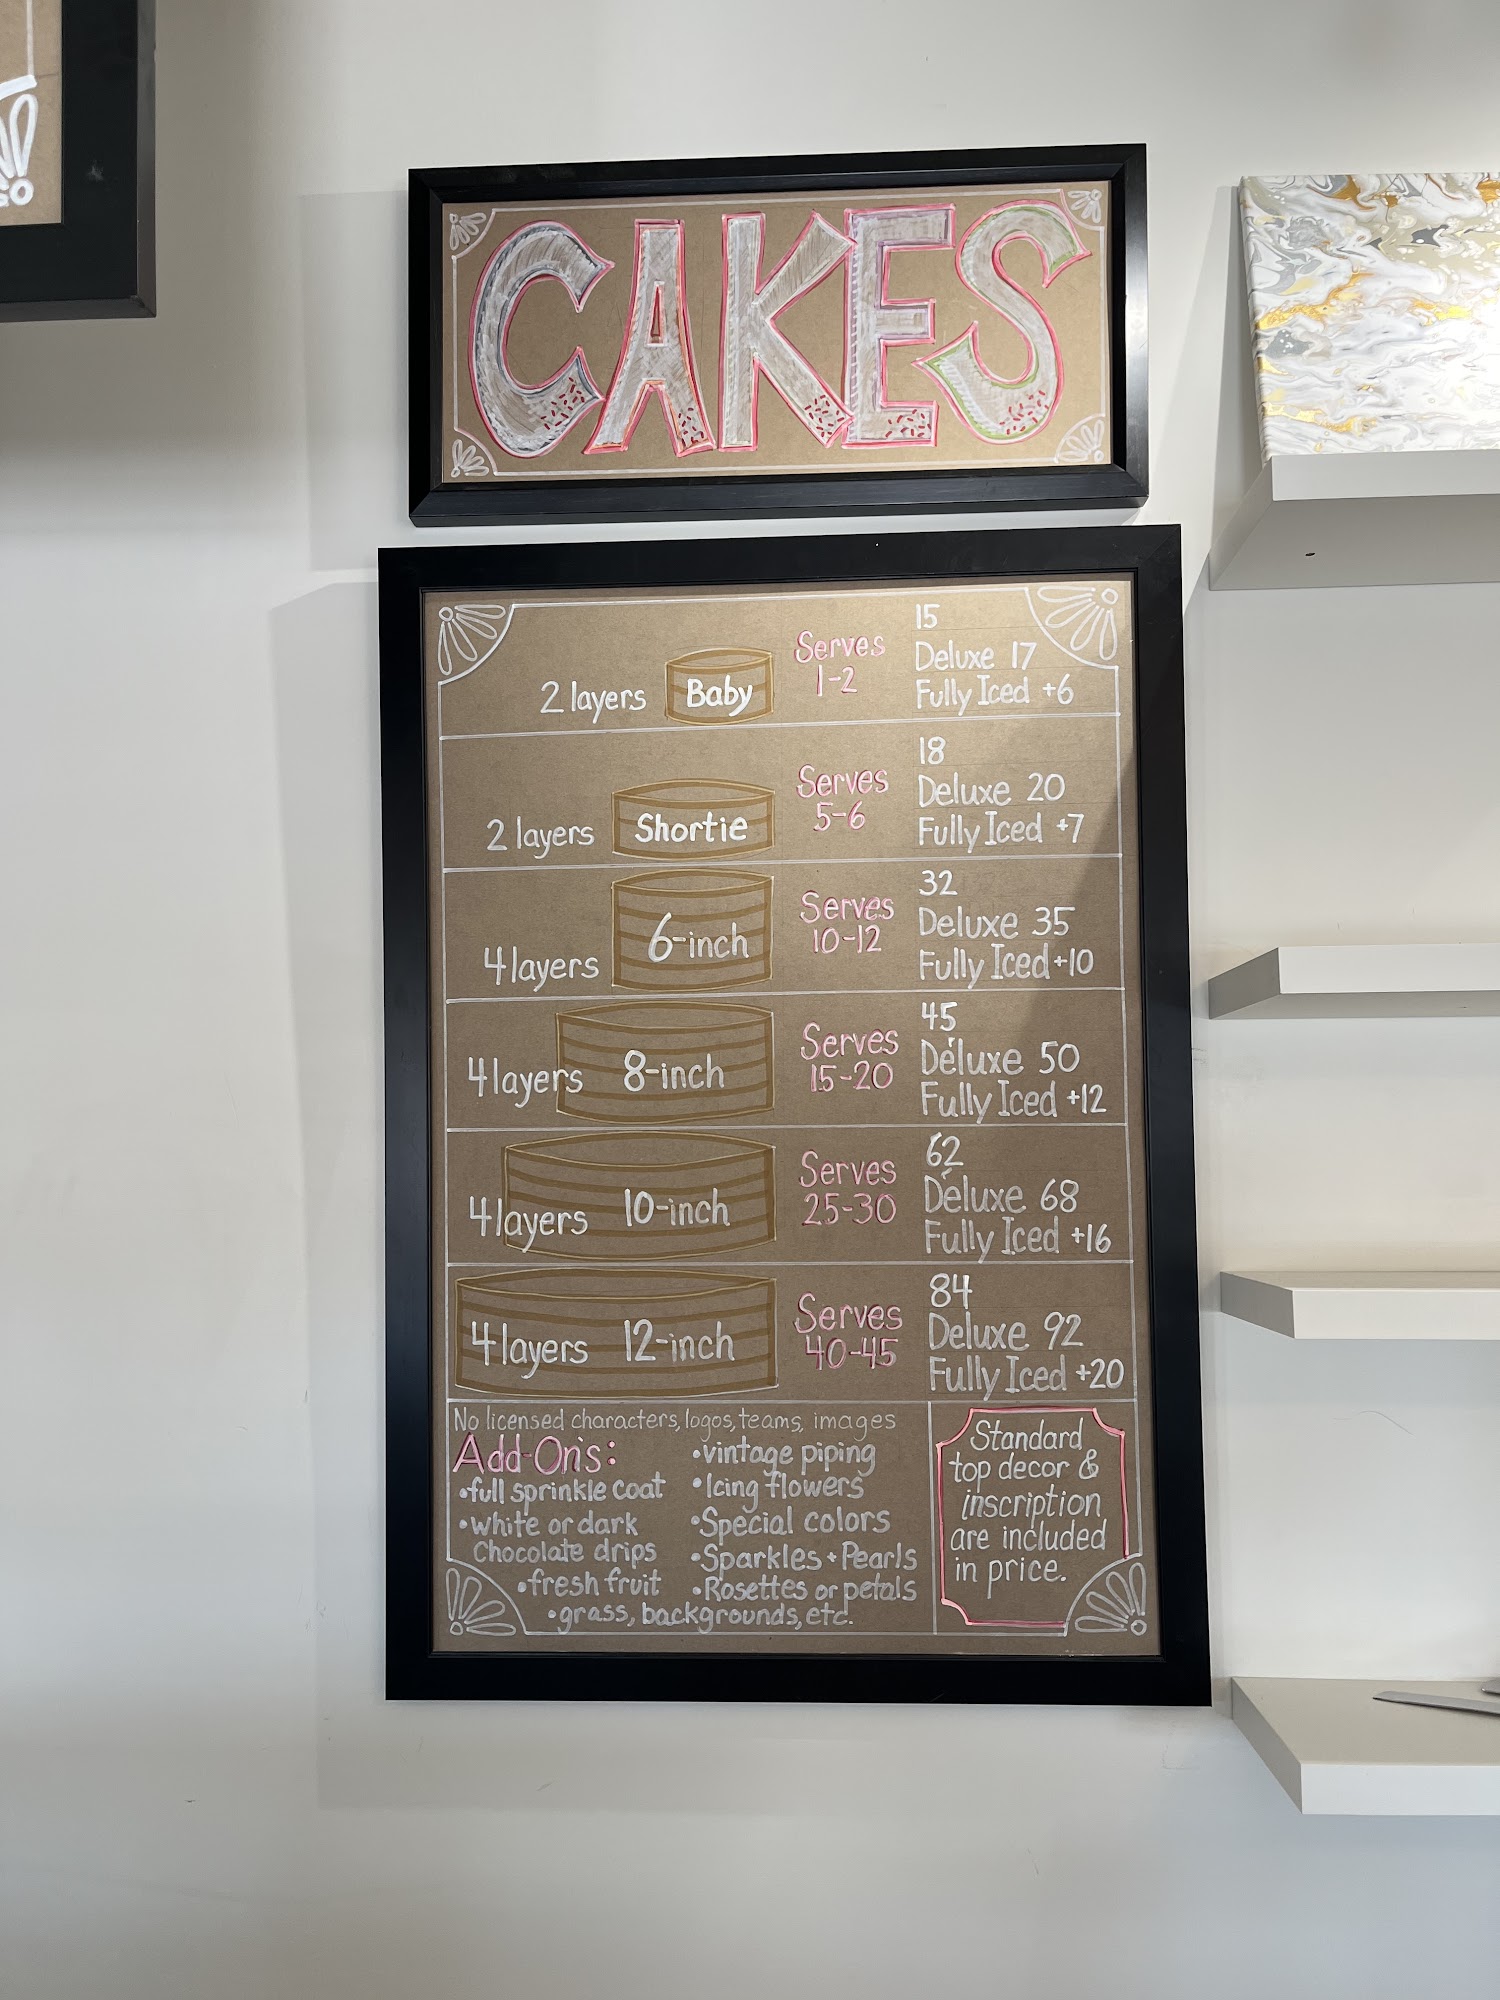 CAKES
2 layers Baby Serves 1-2
15
Deluxe 17
Fully Iced +6
2 layers Shortie Serves 5-6
18
Deluxe 20
Fully Iced +7
4 layers 6-inch Serves 10-12
32
Deluxe 35
Fully Iced +10
4 layers 8-inch Serves 15-20
45
Deluxe 50
Fully Iced +12
4 layers 10-inch Serves 25-30
62
Deluxe 68
Fully Iced +16
4 layers 12-inch Serves 40-45
84
Deluxe 92
Fully Iced +20
No licensed characters, logos, teams, images
Add-On's:
•full sprinkle coat
•white or dark
Chocolate drips
•fresh fruit
•grass, backgrounds, etc.
•vintage piping
•Icing flowers
•Special colors
•Sparkles + Pearls
•Rosettes or petals
Standard
top decor &
inscription
are included
in price.